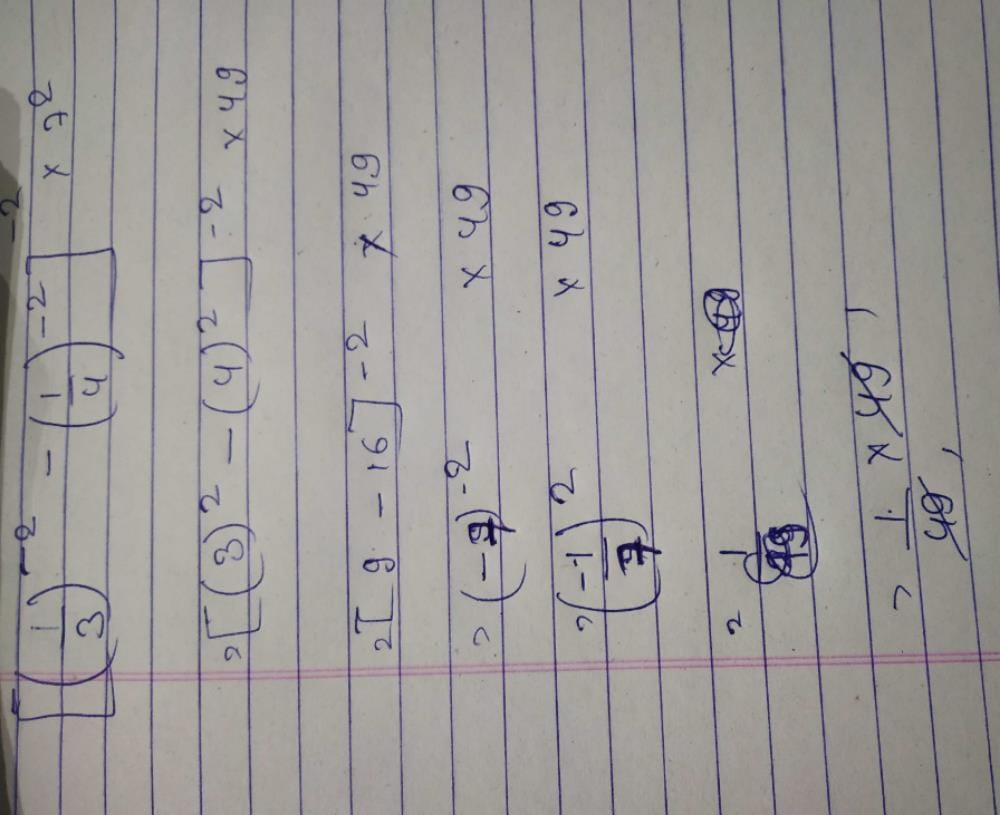 [(1/3)^-2 - (1/4)^-2]^-2 × 7^2
= [(3)^2 - (4)^2]^-2 × 49
= [9 - 16]^-2 × 49
= (-7)^-2 × 49
= (-1/7)^2 × 49
= 1/49 × 49
= 1/49 × 49